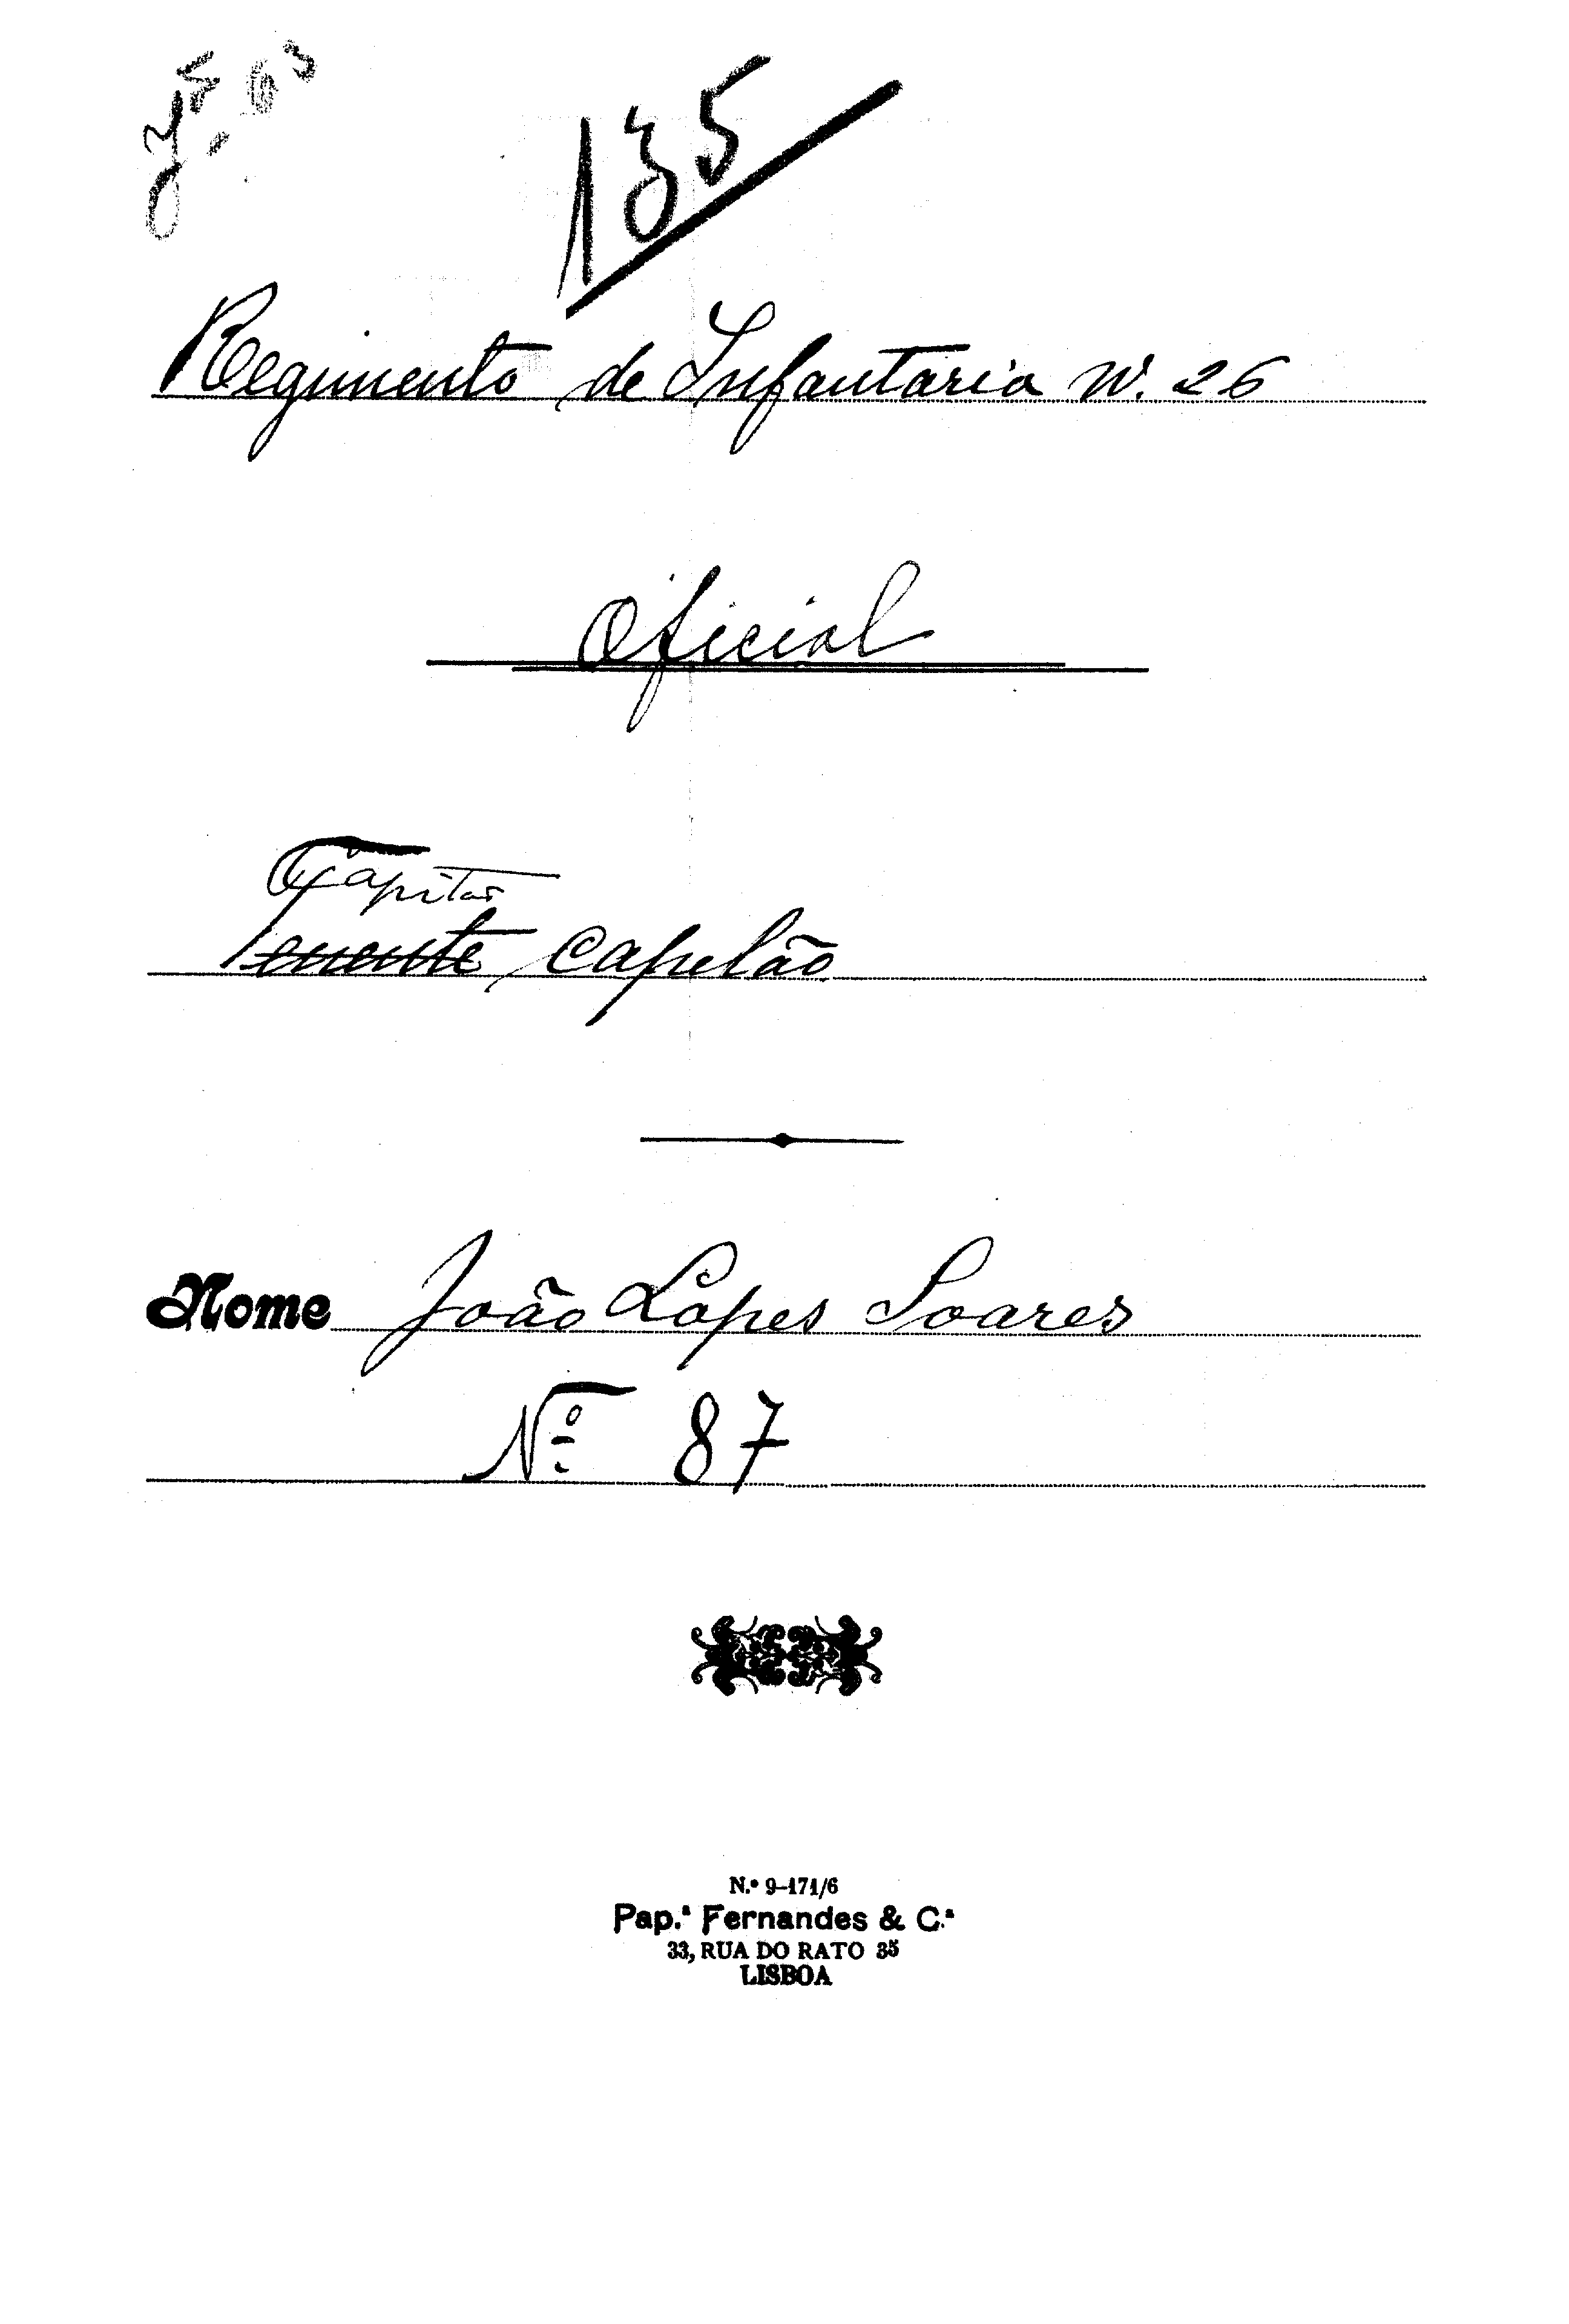 135
Regimento de Infantaria Nº. 26
Oficial
Capitão
Tenente Capelão
Nome João Lopes Soares
Nº 87
N.º 9-171/6
Pap.ª Fernandes & C.ª
33, RUA DO RATO 35
LISBOA